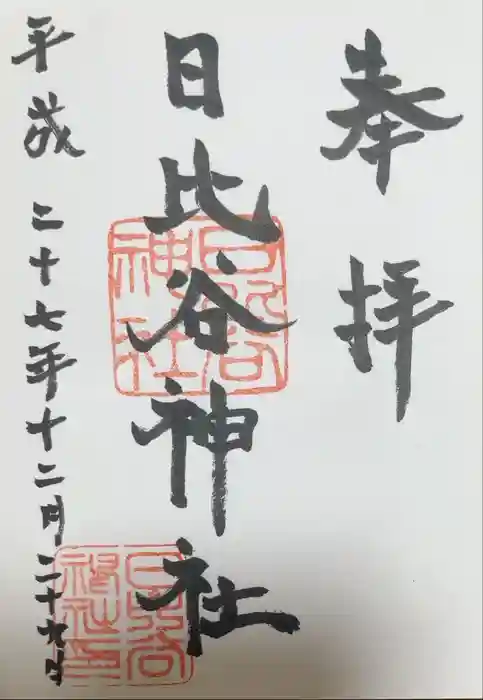 奉拝
日比谷神社
平成二十七年十二月二十九日
日比谷神社